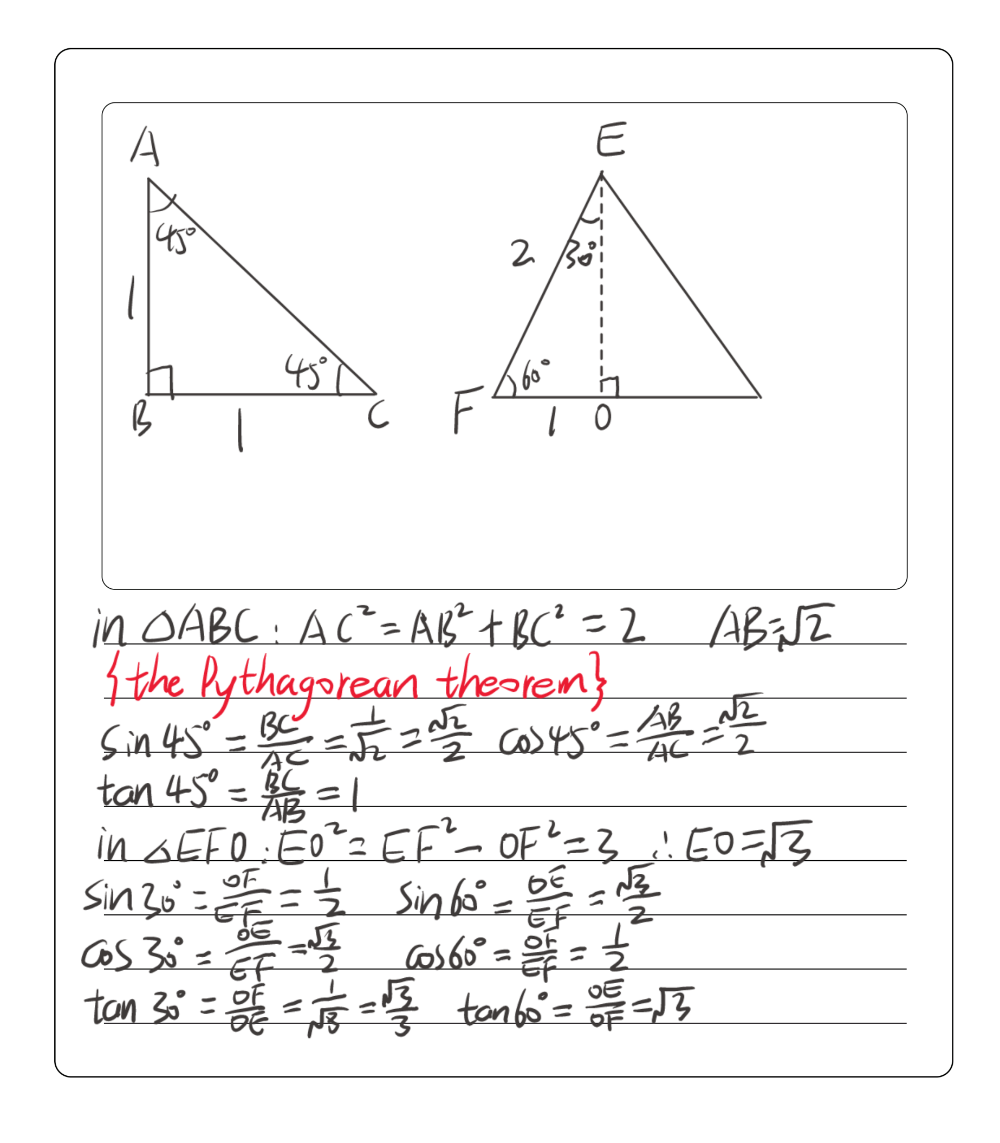 A
E
45°
2
30°
1
45°
60°
B
1
C
F
1
O
in △ABC: AC² = AB² + BC² = 2 AB=√2
{the Pythagorean theorem}
sin 45° = BC/AC = 1/√2 = √2/2 cos 45° = AB/AC = √2/2
tan 45° = BC/AB = 1
in △EFO: EO² = EF² - OF² = 3 ∴ EO=√3
sin 30° = OF/EF = 1/2 sin 60° = OE/EF = √3/2
cos 30° = OE/EF = √3/2 cos 60° = OF/EF = 1/2
tan 30° = OF/OE = 1/√3 = √3/3 tan 60° = OE/OF = √3